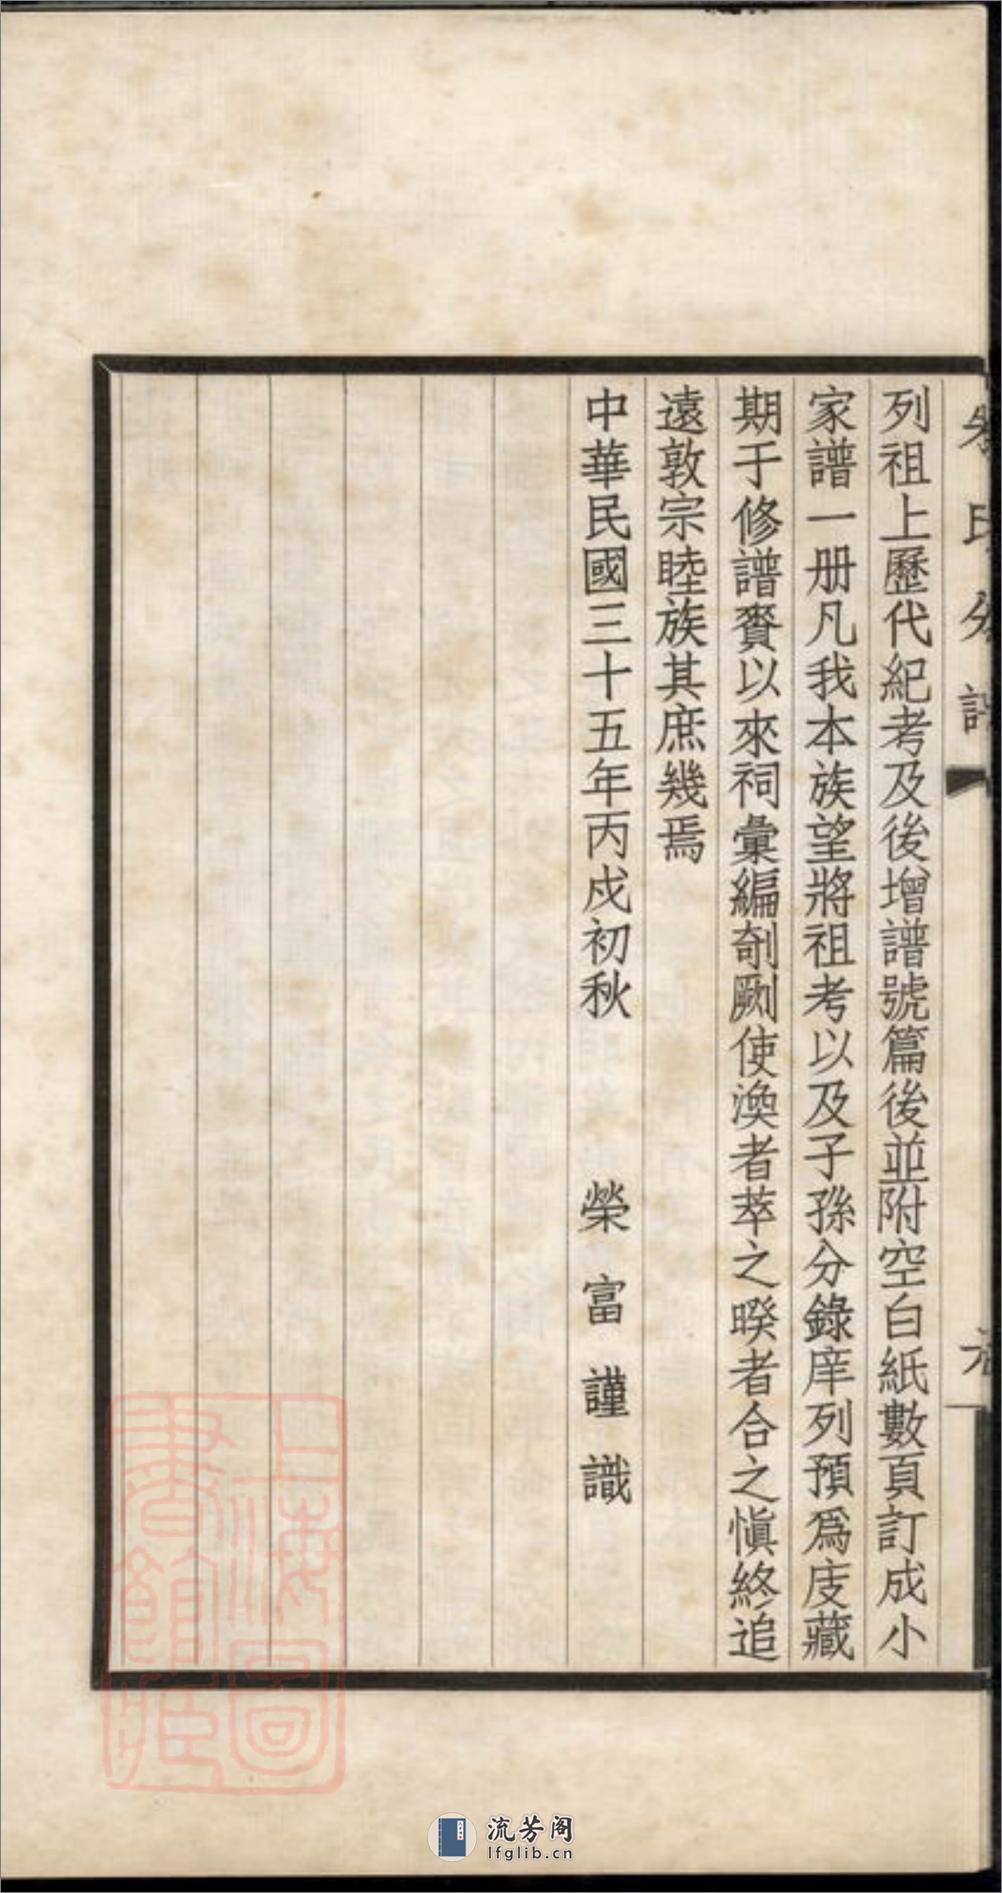 列祖上歷代紀考及後增譜號篇後並附空白紙數頁訂成小
家譜一册凡我本族望將祖考以及子孫分錄庠列預爲庋藏
期于修譜賚以來祠彙編剞劂使渙者萃之暌者合之愼終追
遠敦宗睦族其庶幾焉
中華民國三十五年丙戍初秋 榮富謹識
上海圖書館藏
流芳阁
lfglib.cn